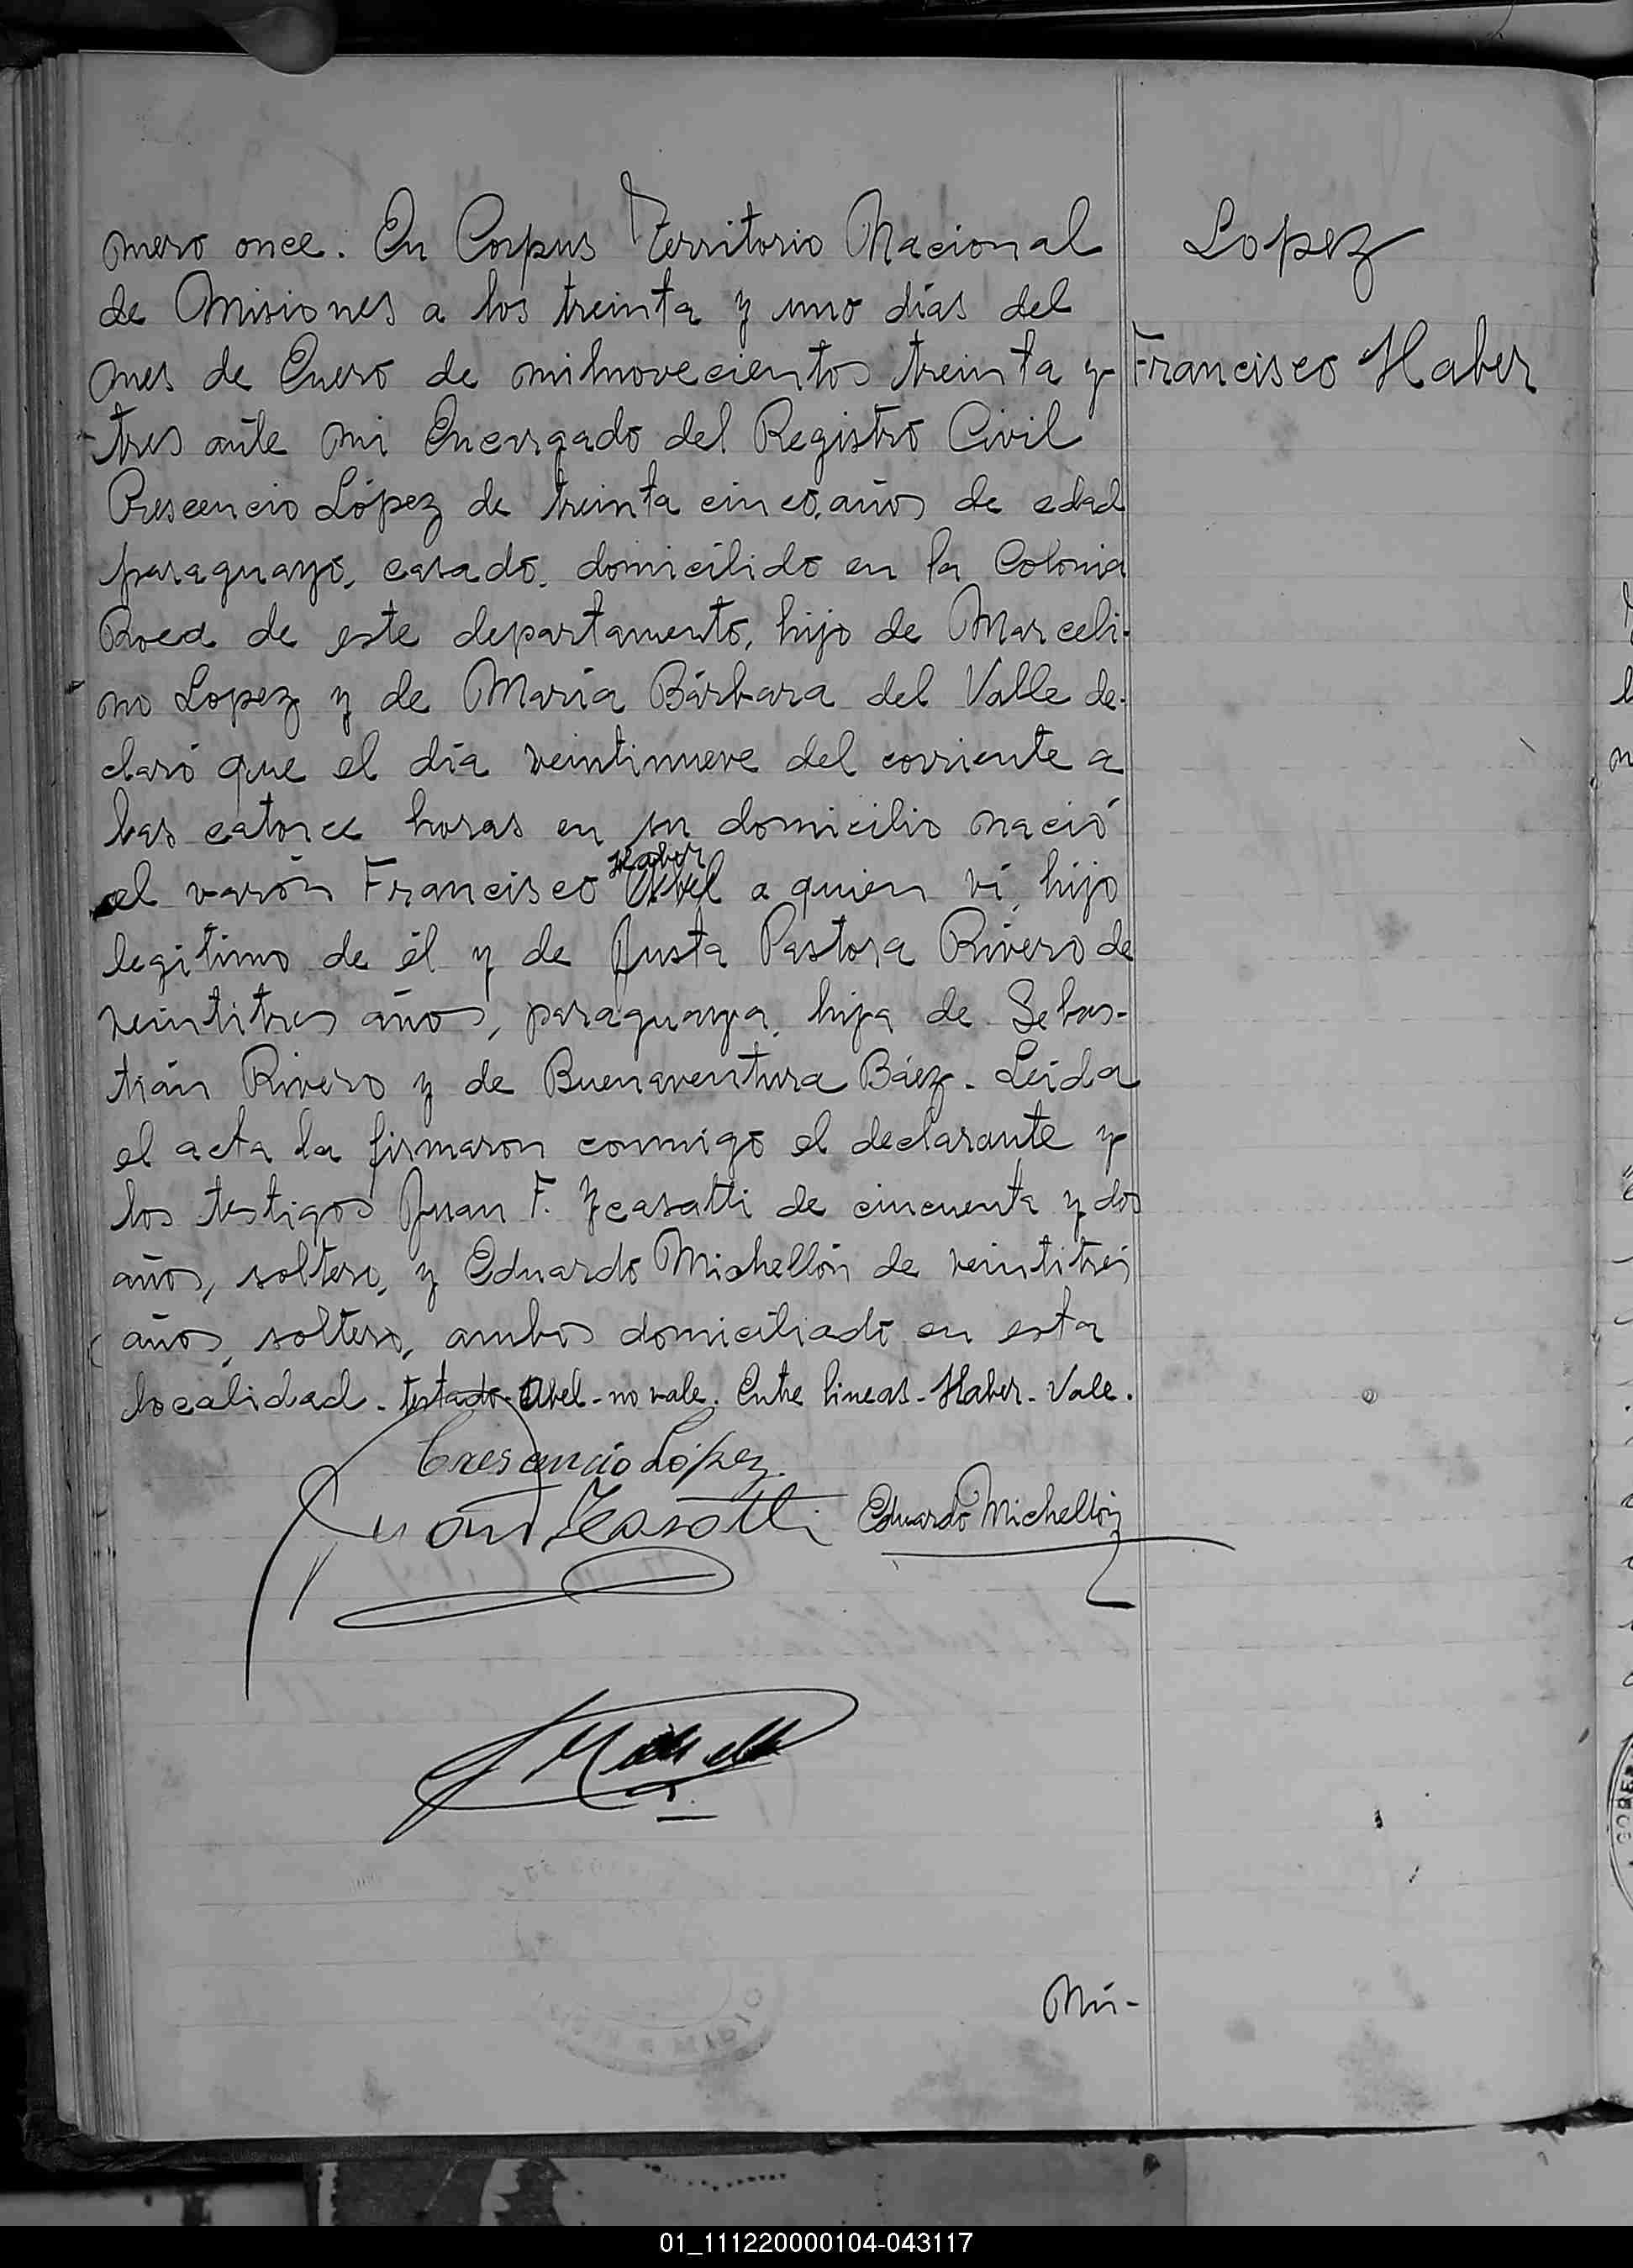 mero once. En Corpus Territorio Nacional
de Misiones a los treinta y uno días del
mes de Enero de milnovecientos treinta y
tres ante mi Encargado del Registro Civil
Crescencio López de treinta cinco años de edad
paraguayo, casado, domicilido en la Colonia
Roca de este departamento, hijo de Marceli-
no Lopez y de María Bárbara del Valle de-
claró que el día veintinueve del corriente a
las catorce horas en su domicilio nació
Haber
el varón Francisco Abel a quien ví, hijo
legítimo de él y de Justa Pastora Rivero de
veintitres años, paraguaya, hija de Sebas-
tián Rivero y de Buenaventura Báez. Leída
el acta la firmaron conmigo el declarante y
los testigos Juan F. Zcasatti de cincuenta y dos
años, soltero, y Eduardo Michellón de veintitrés
años, soltero, ambos domiciliado en esta
localidad. testado-Abel-no vale. Entre lineas-Haber-Vale.
Crescencio López
Juan Zcasatti Eduardo Michellón
Nú-
Lopez
Francisco Haber
01_111220000104-043117